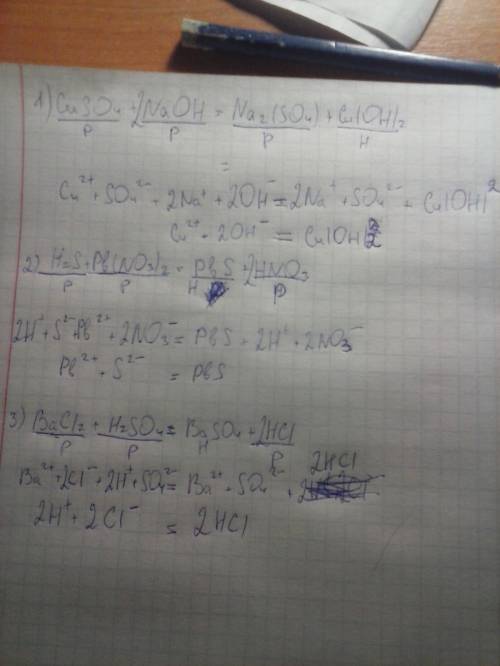 1) CuSO4 + 2NaOH = Na2(SO4) + Cu(OH)2
P P P H
=
Cu²⁺ + SO4²⁻ + 2Na⁺ + 2OH⁻ = 2Na⁺ + SO4²⁻ + Cu(OH)2
Cu²⁺ + 2OH⁻ = Cu(OH)2
2) H2S + Pb(NO3)2 = PbS + 2HNO3
P P H P
2H⁺ + S²⁻ + Pb²⁺ + 2NO3⁻ = PbS + 2H⁺ + 2NO3⁻
Pb²⁺ + S²⁻ = PbS
3) BaCl2 + H2SO4 = BaSO4 + 2HCl
P P H P
Ba²⁺ + 2Cl⁻ + 2H⁺ + SO4²⁻ = Ba²⁺ + SO4²⁻ + 2HCl
2H⁺ + 2Cl⁻ = 2HCl